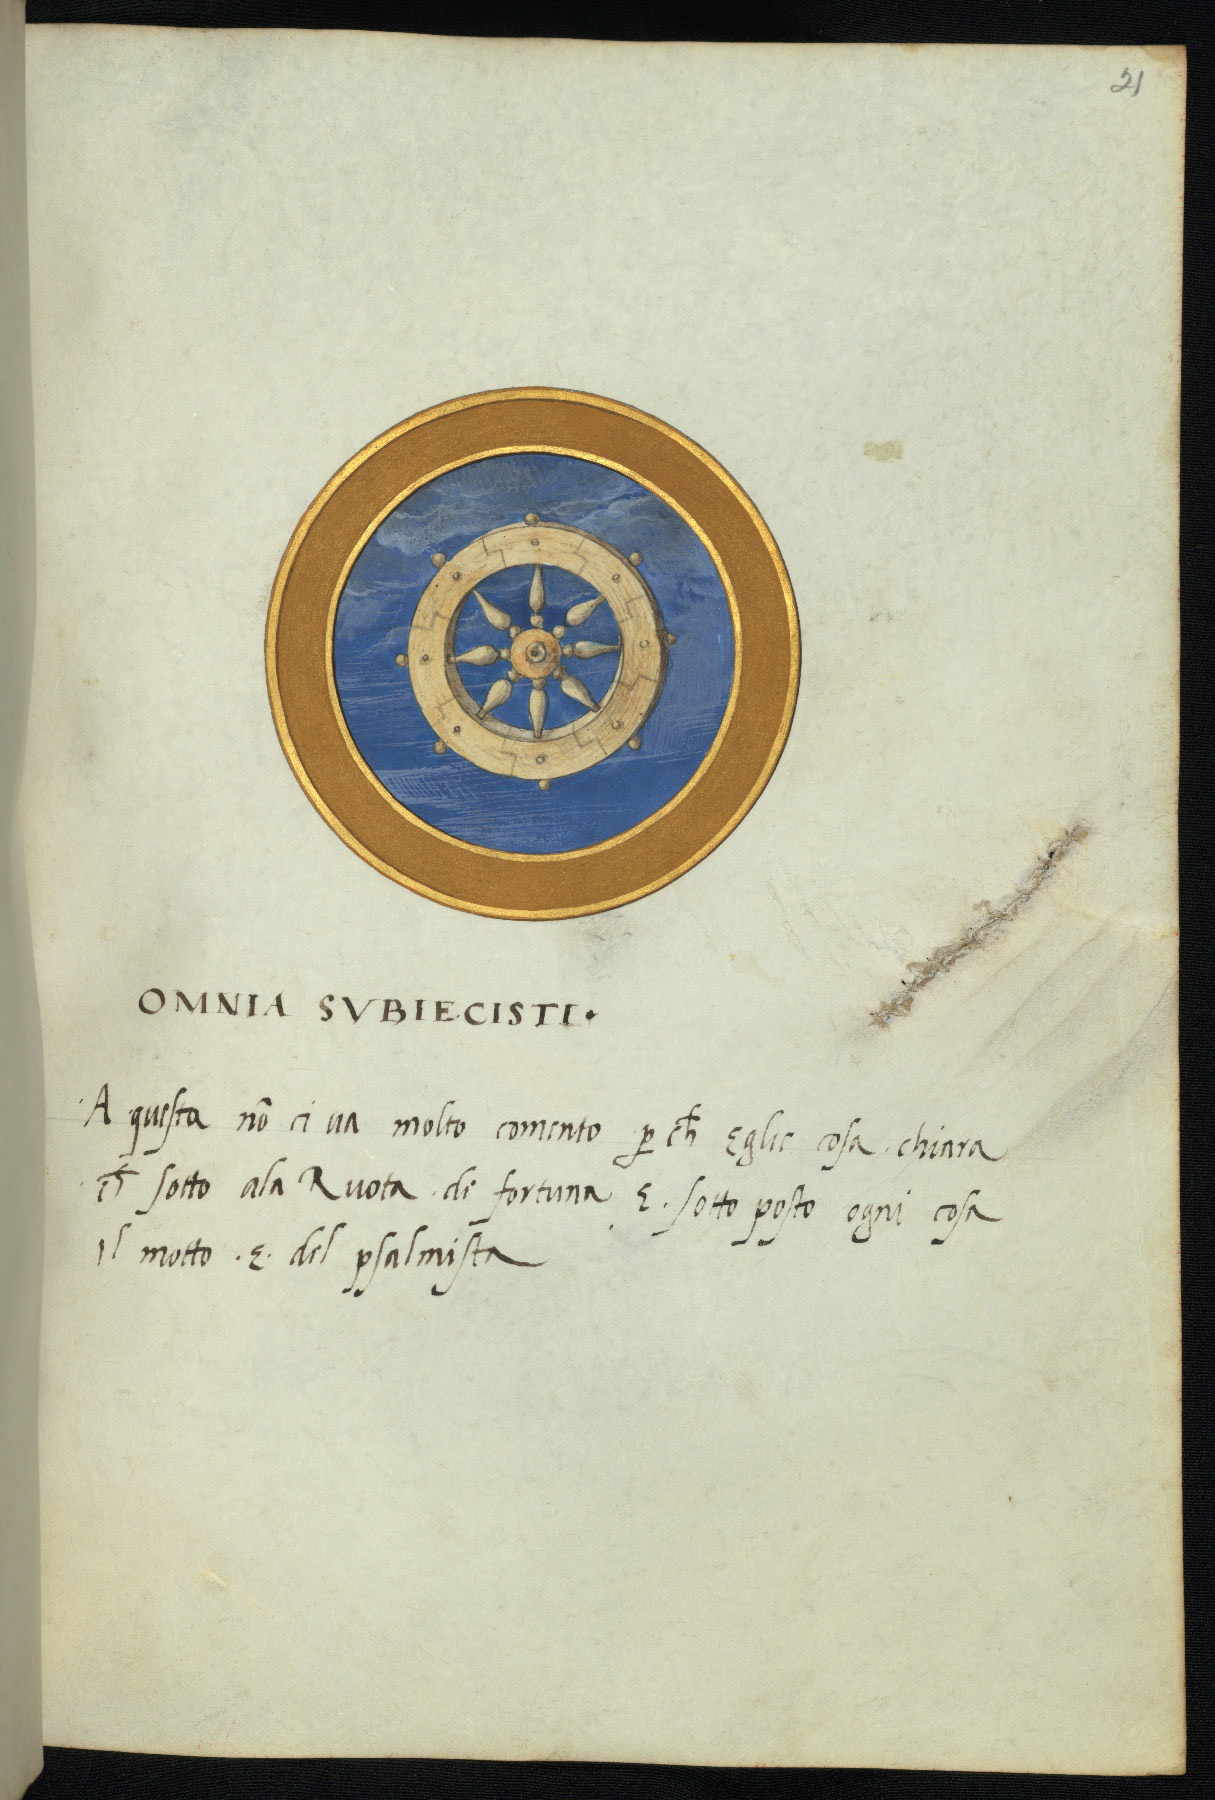 21
OMNIA SVBIECISTI·
A questa nō ci va molto comento p̱ ch̄ Eglie cosa chiara
ch̄ sotto ala Ruota de fortuna E. sotto posto ogni cosa
Il motto .E. del psalmista